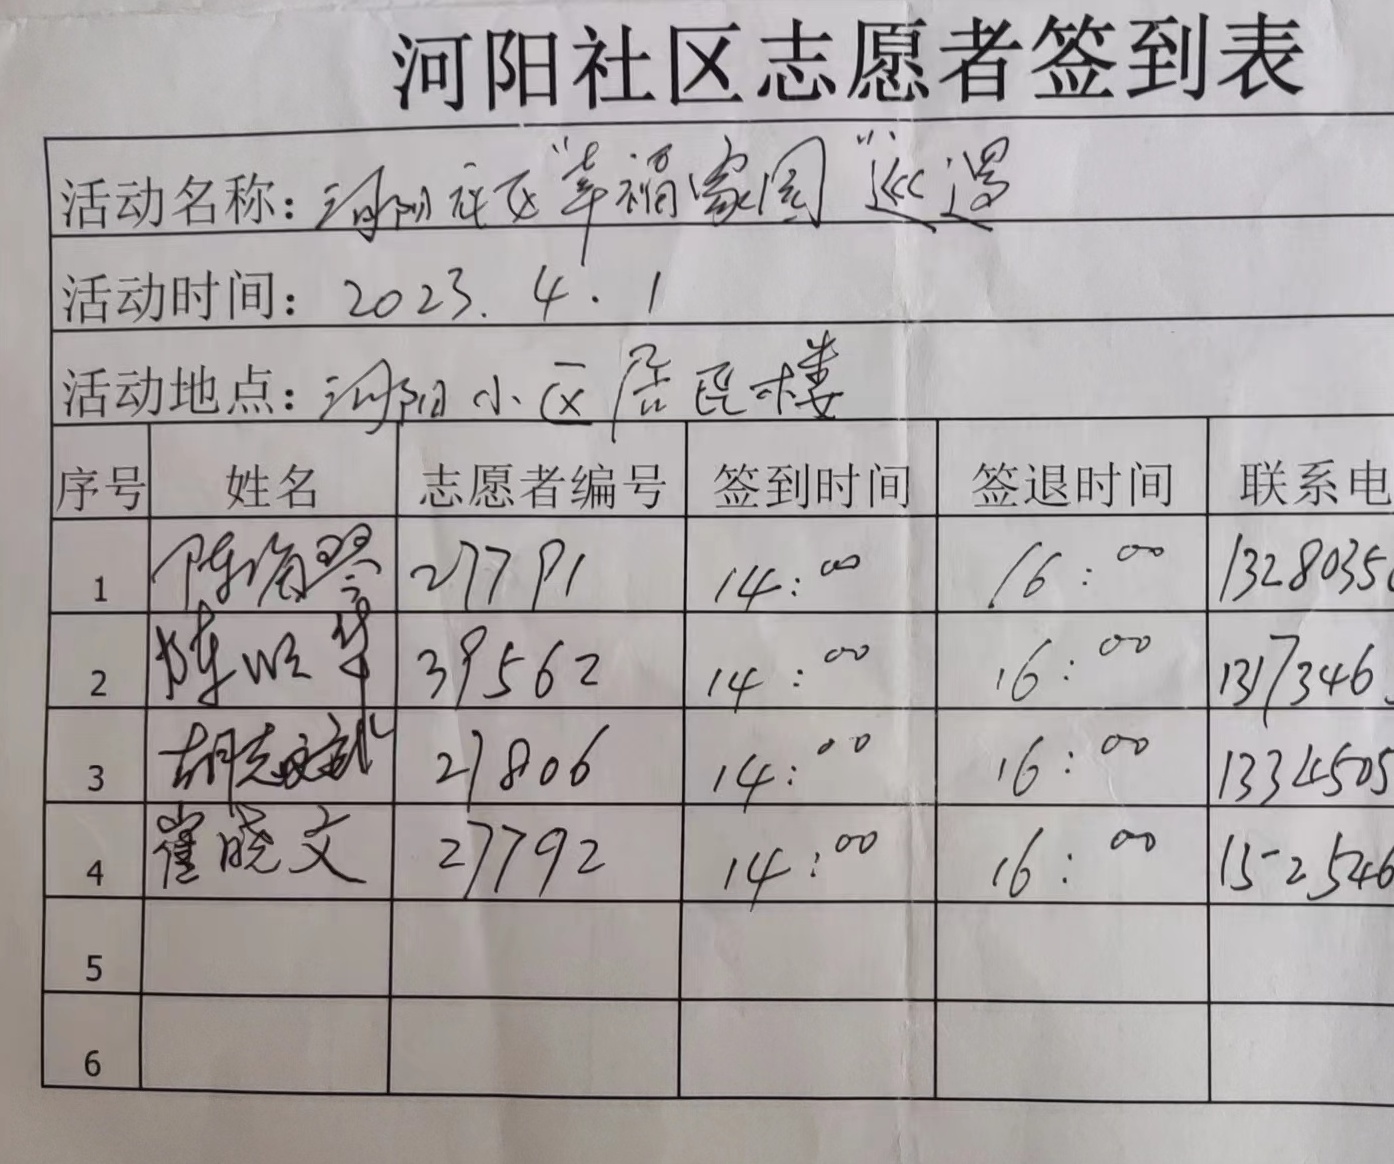 河阳社区志愿者签到表
活动名称：河阳社区“幸福家园”巡逻
活动时间：2023.4.1
活动地点：河阳小区居民楼
序号 姓名 志愿者编号 签到时间 签退时间 联系电
1 陈 27791 14:00 16:00 1328035
2 陈 华 39562 14:00 16:00 1317346
3 胡志斌 27806 14:00 16:00 1334505
4 崔晓文 27792 14:00 16:00 152546
5
6